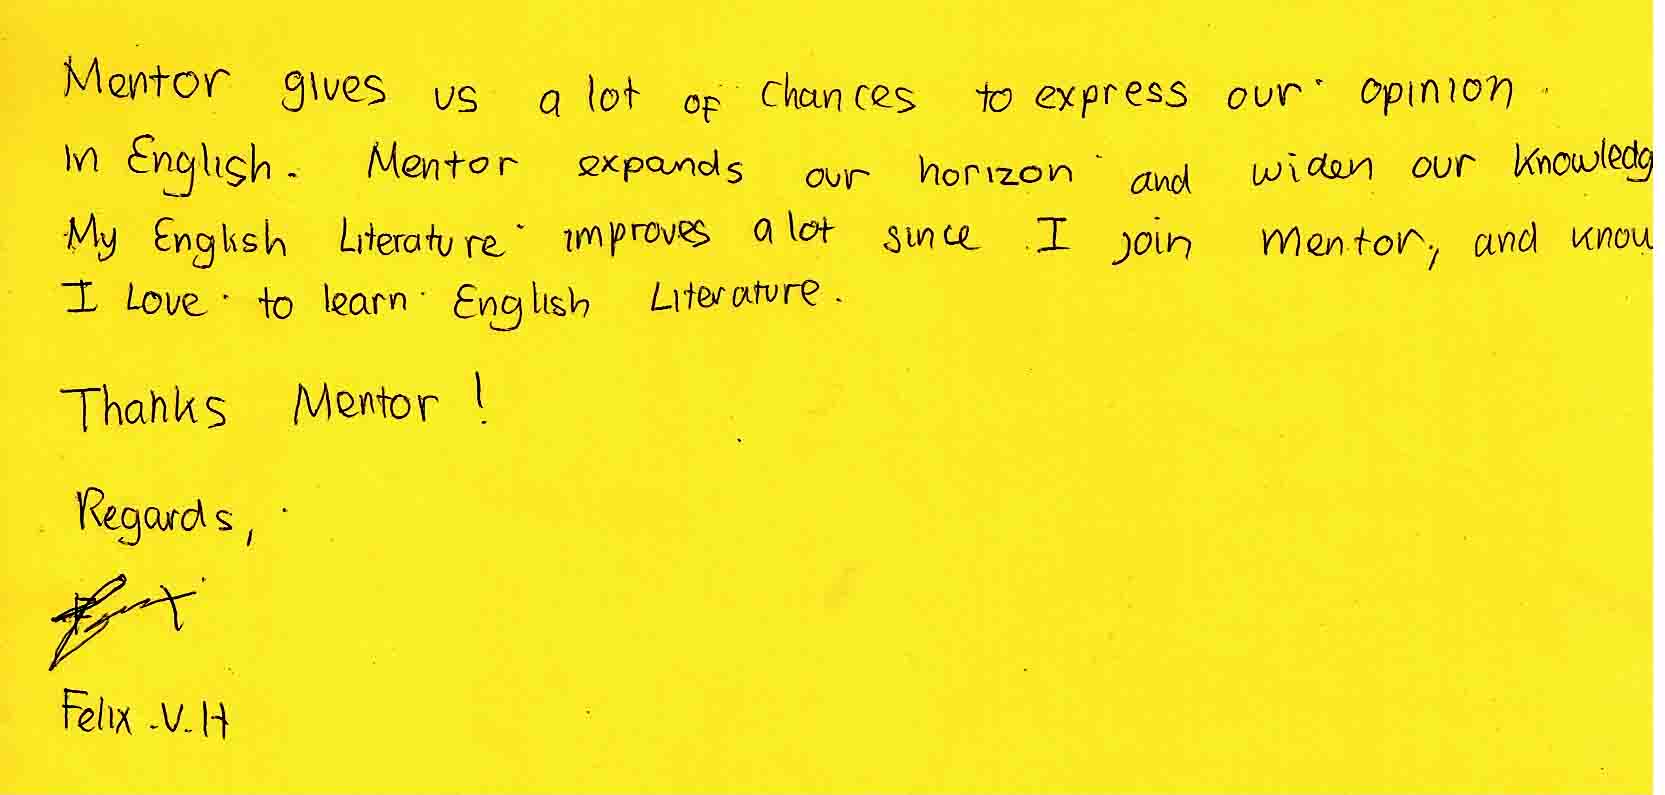 Mentor gives us a lot of chances to express our opinion
in English. Mentor expands our horizon and widen our knowledg
My English Literature improves a lot since I join Mentor, and know
I Love to learn English Literature.
Thanks Mentor !
Regards,
Felix .V. H